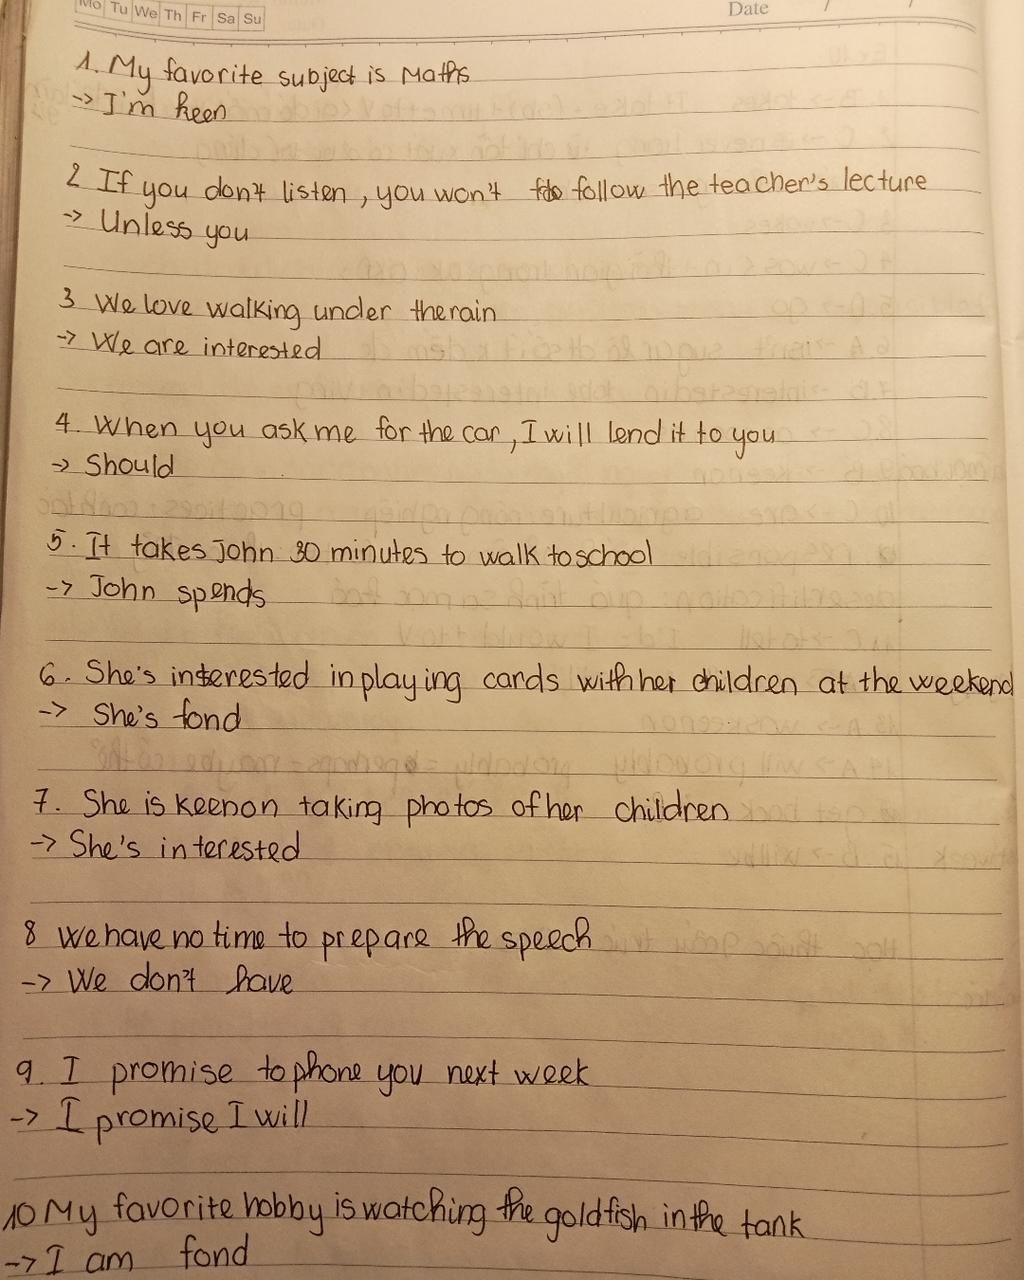 Mo Tu We Th Fr Sa Su
Date / /
1. My favorite subject is Maths
-> I'm keen
2 If you don't listen, you won't follow the teacher's lecture
-> Unless you
3 We love walking under the rain
-> We are interested
4. When you ask me for the car, I will lend it to you
-> Should
5. It takes John 30 minutes to walk to school
-> John spends
6. She's interested in playing cards with her children at the weekend
-> She's fond
7. She is keen on taking photos of her children
-> She's interested
8 We have no time to prepare the speech
-> We don't have
9. I promise to phone you next week
-> I promise I will
10 My favorite hobby is watching the goldfish in the tank
-> I am fond